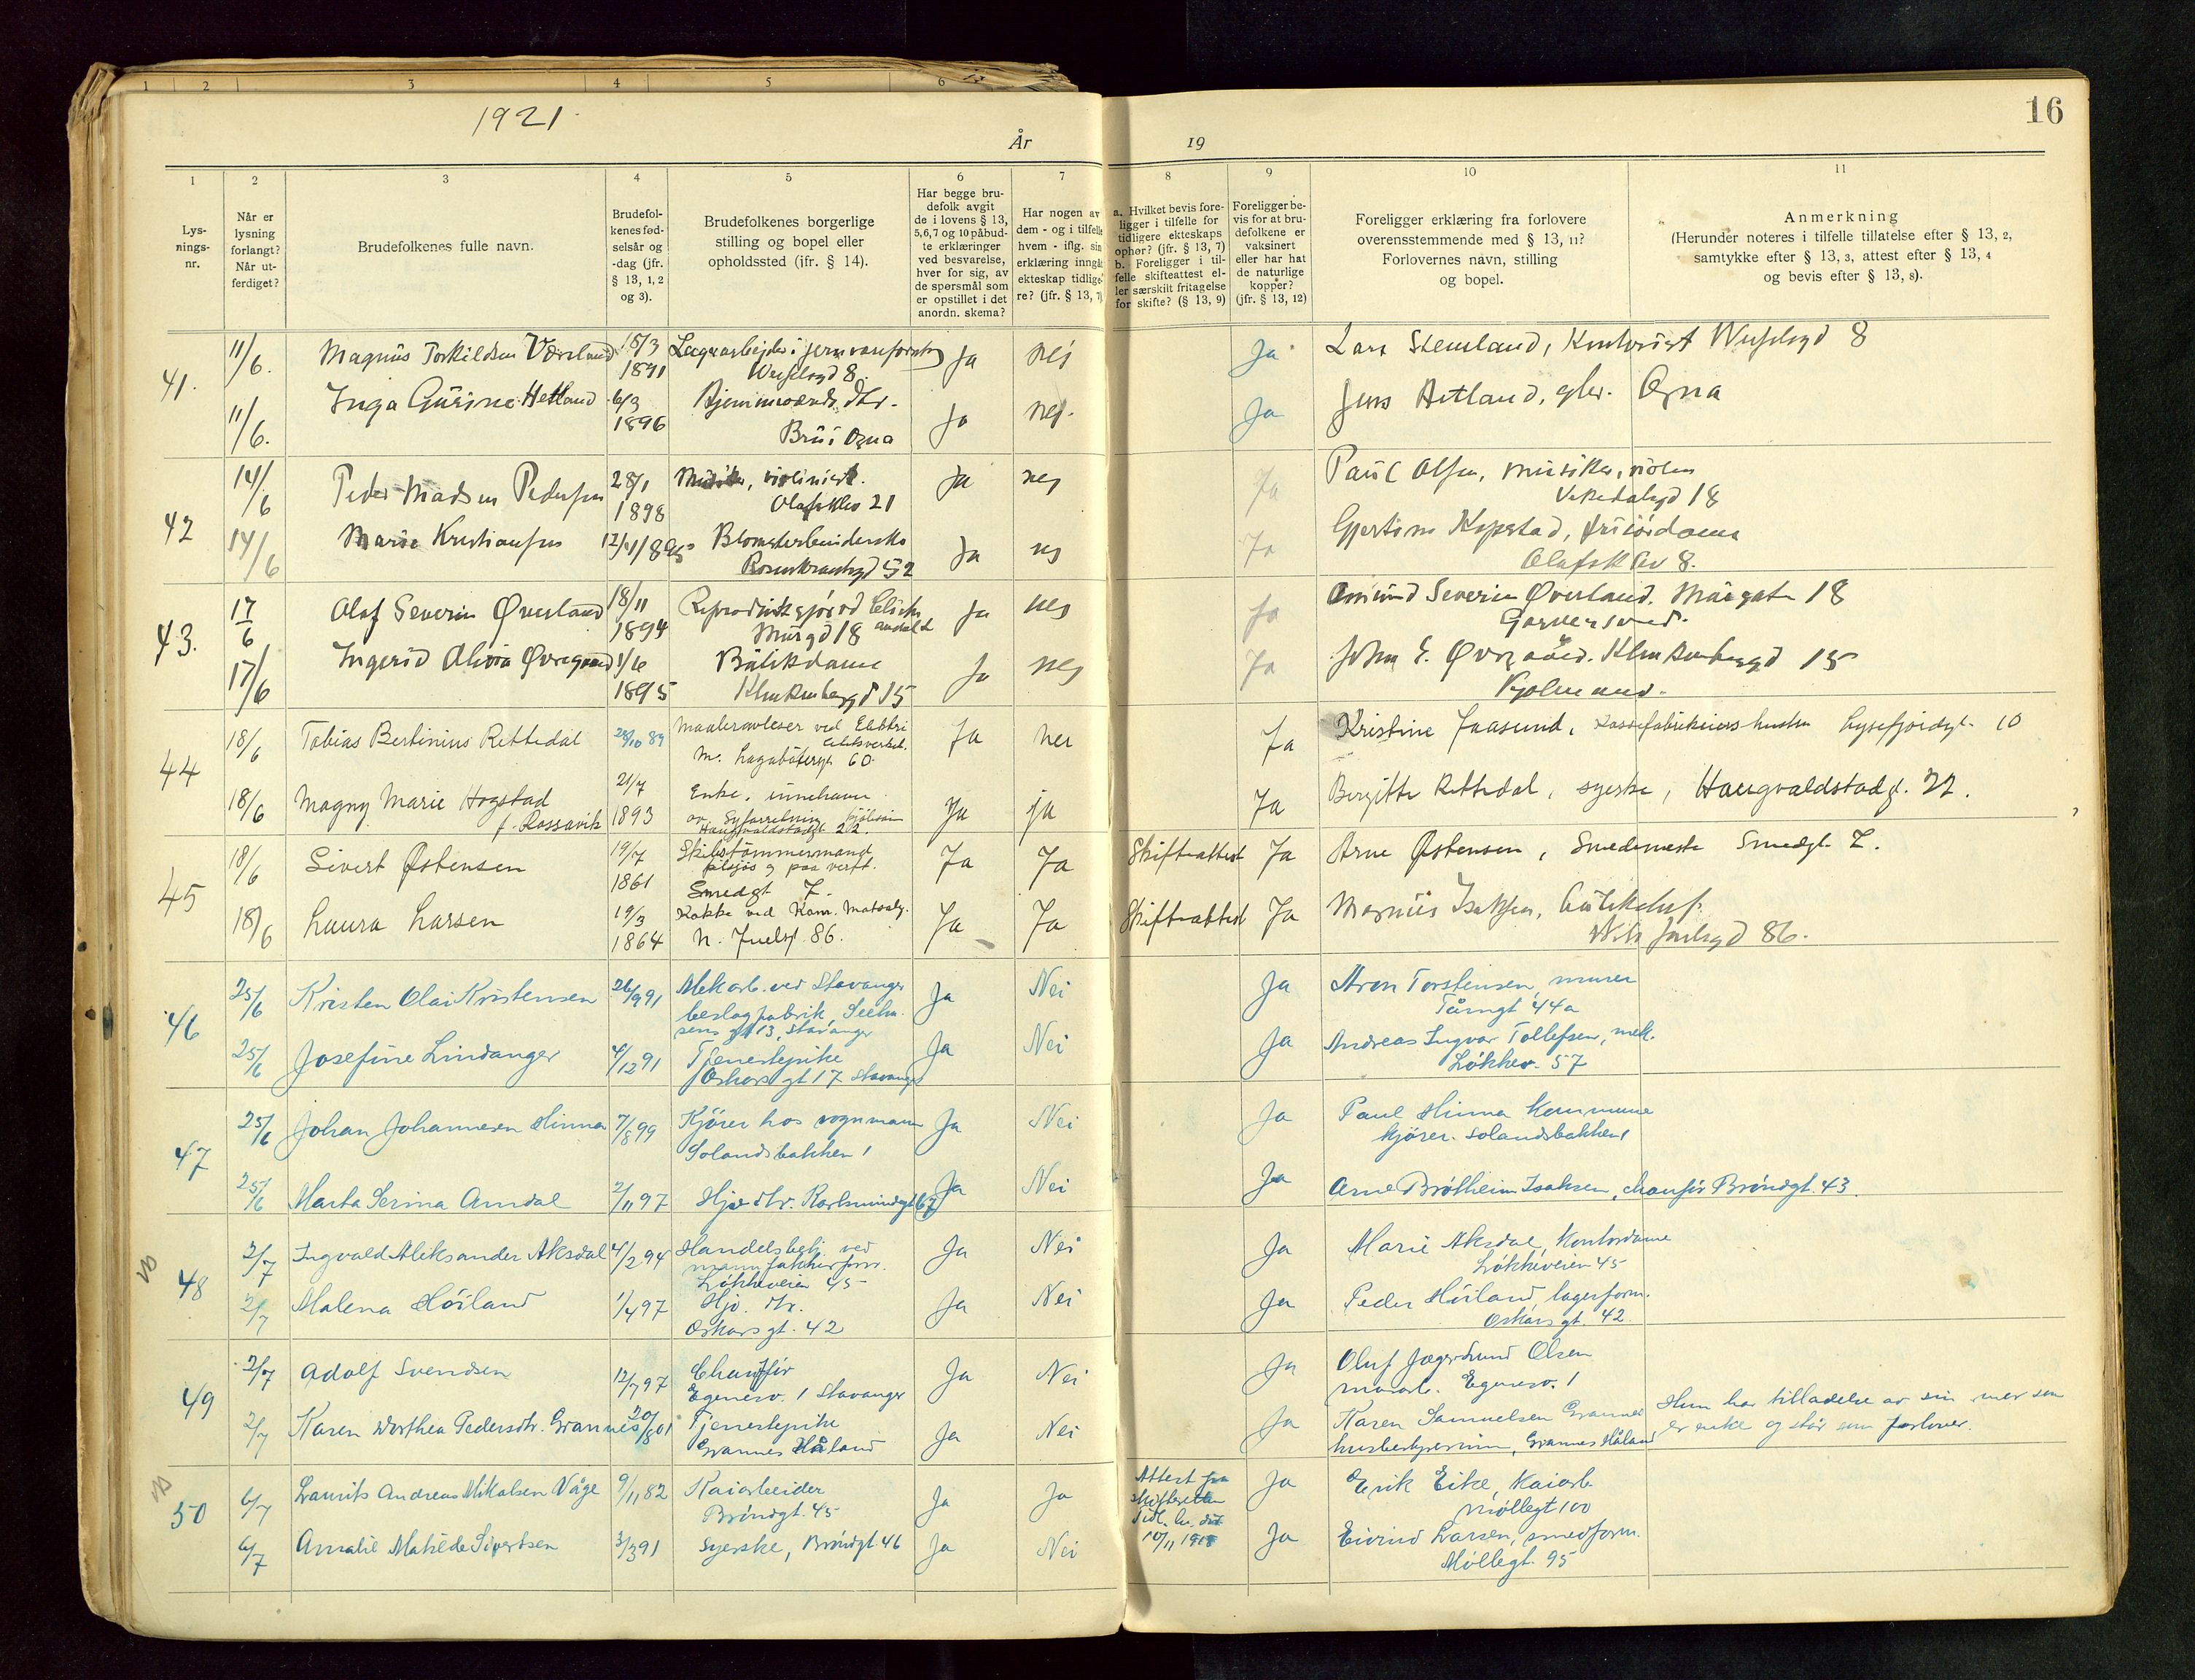 1 2 3 4 5 6
1921.
År
19
16
1 2 3 4 5 6 7 8 9 10 11
Lys-
nings-
nr.
Når er
lysning
forlangt?
Når ut-
ferdiget?
Brudefolkenes fulle navn.
Brudefol-
kenes fød-
selsår og
-dag (jfr.
§ 13, 1, 2
og 3).
Brudefolkenes borgerlige
stilling og bopel eller
opholdssted (jfr. § 14).
Har begge bru-
defolk avgit
de i lovens § 13,
5,6,7 og 10 påbud-
te erklæringer
ved besvarelse,
hver for sig, av
de spørsmål som
er opstillet i det
anordn. skema?
Har nogen av
dem - og i tilfelle
hvem - iflg. sin
erklæring inngåt
ekteskap tidlige-
re? (jfr. § 13, 7)
a. Hvilket bevis fore-
ligger i tilfelle for
tidligere ekteskaps
ophør? (jfr. § 13, 7)
b. Foreligger i til-
felle skifteattest el-
ler særskilt fritagelse
for skifte? (§ 13, 9)
Foreligger be-
vis for at bru-
defolkene er
vaksinert
eller har hat
de naturlige
kopper?
(jfr. § 13, 12)
Foreligger erklæring fra forlovere
overensstemmende med § 13, 11?
Forlovernes navn, stilling
og bopel.
Anmerkning
(Herunder noteres i tilfelle tillatelse efter § 13, 2,
samtykke efter § 13, 3, attest efter § 13, 4
og bevis efter § 13, 8).
41.
11/6. Magnus Torkildsen 15/3 1891
8. Ja nei Ja
Lars Stemland, 8
11/6. Inga Gurine Hetland 6/3 1896
Ogna Ja nej. Ja
Jens Hetland, Ogna
42
14/6 Peder Madsen Pedersen 28/1 1898
violinist.
Olafsklev 21 Ja nej Ja
Paul Olsen, musiker, violin
18
14/6 Marie Kristiansen 12/11 1895
Blomsterbinderske
Rosenkrantzgd 52 Ja nej Ja
Gjertine Kopstad,
Olafsklev 8.
43.
17/6 Olaf Severin Øverland 18/11 1894
Murgd 18 Ja nej Ja
Severin Øverland. Murgata 18
17/6 Ingerid Olivia 1/6 1895
Butikdame
15 Ja nej Ja
John 15
44
18/6 Tobias Bertinius Rettedal 28/10 89
Maaleravleser ved Elektri
citetsverket.
M. Lagabøtersgt. 60. Ja nei Ja
Kristine Jaasund, Lysefjordgt. 10
18/6 Magny Marie Hogstad
f. Rossavik 21/7 1893
Enke, innehaver
av Syforretning
Haugvaldstadgt 22. Ja ja Ja
Birgitte Rettedal, syerske, Haugvaldstadgt. 22.
45
18/6 Sivert Østensen 19/7 1861
Skibstømmermand
tilsjøs og paa verft.
Smedgt 7. Ja Ja Skifteattest Ja
Arne Østensen, Smedmester Smedgt. 7.
18/6 Laura Larsen 19/3 1864
Kokke ved Kom. Matsalg.
N. Juelsgt. 86. Ja Ja Skifteattest Ja
Magnus Isaksen,
Nils Juelsgd 86.
46
25/6 Kristen Olai Kristensen 26/9 91
Mek arb. ved Stavanger
beslagfabrik, Seehu-
sens gt 13, Stavanger Ja Nei Ja
Aron Torstensen, murer
Tårngt 44a
25/6 Josefine Lindanger 4/12 91
Tjenestepike
Oskars gt 17 Stavanger Ja Nei Ja
Andreas Ingvar Tollefsen, mek.
Løkkev. 57
47
25/6 Johan Johannesen Hinna 7/8 99
Kjører hos vognmann
Solandsbakken 1 Ja Nei Ja
Paul Hinna Kommune
kjører. Solandsbakken 1
25/6 Marta Serina Amdal 2/11 97
Hjv. dtr. Karlsmindegt 67 Ja Nei Ja
Arne Brøtheim Isaksen, chaufør Brøndgt. 43.
48
2/7 Ingvald Aleksander Aksdal 4/2 94
Handelsbetj. ved
manufakturforr.
Løkkeveien 45 Ja Nei Ja
Marie Aksdal, Kontordame
Løkkeveien 45
2/7 Malena Høiland 1/4 97
Hjv. dtr.
Oskars gt. 42 Ja Nei Ja
Peder Høiland lagerform.
Oskars gt. 42.
49
2/7 Adolf Svendsen 12/7 97
Chaufför
Egenesv. 1 Stavanger Ja Nei Ja
Oluf Jægersund Olsen
Egenesv. 1
2/7 Karen Dorthea Pedersdtr. Grannes 20/8 01
Tjenestepike
Grannes Håland Ja Nei Ja
Karen Samuelsen Grannes
husbestyrerinne, Grannes Håland
Hun har tilladelse av sin mor som
er enke og står som forlover.
50
6/7 Laurits Andreas Mikalsen Våge 9/11 82
Kaiarbeider
Brøndgt. 45 Ja Ja
Attest fra
skifteretten
10/11 1918 Ja
Erik Eike, Kaiarb
Møllegt 100
6/7 Amalie Matilde Sivertsen 3/3 91
Syerske, Brøndgt. 46 Ja Nei Ja
Eivind Larsen, smedform.
Møllegt. 95